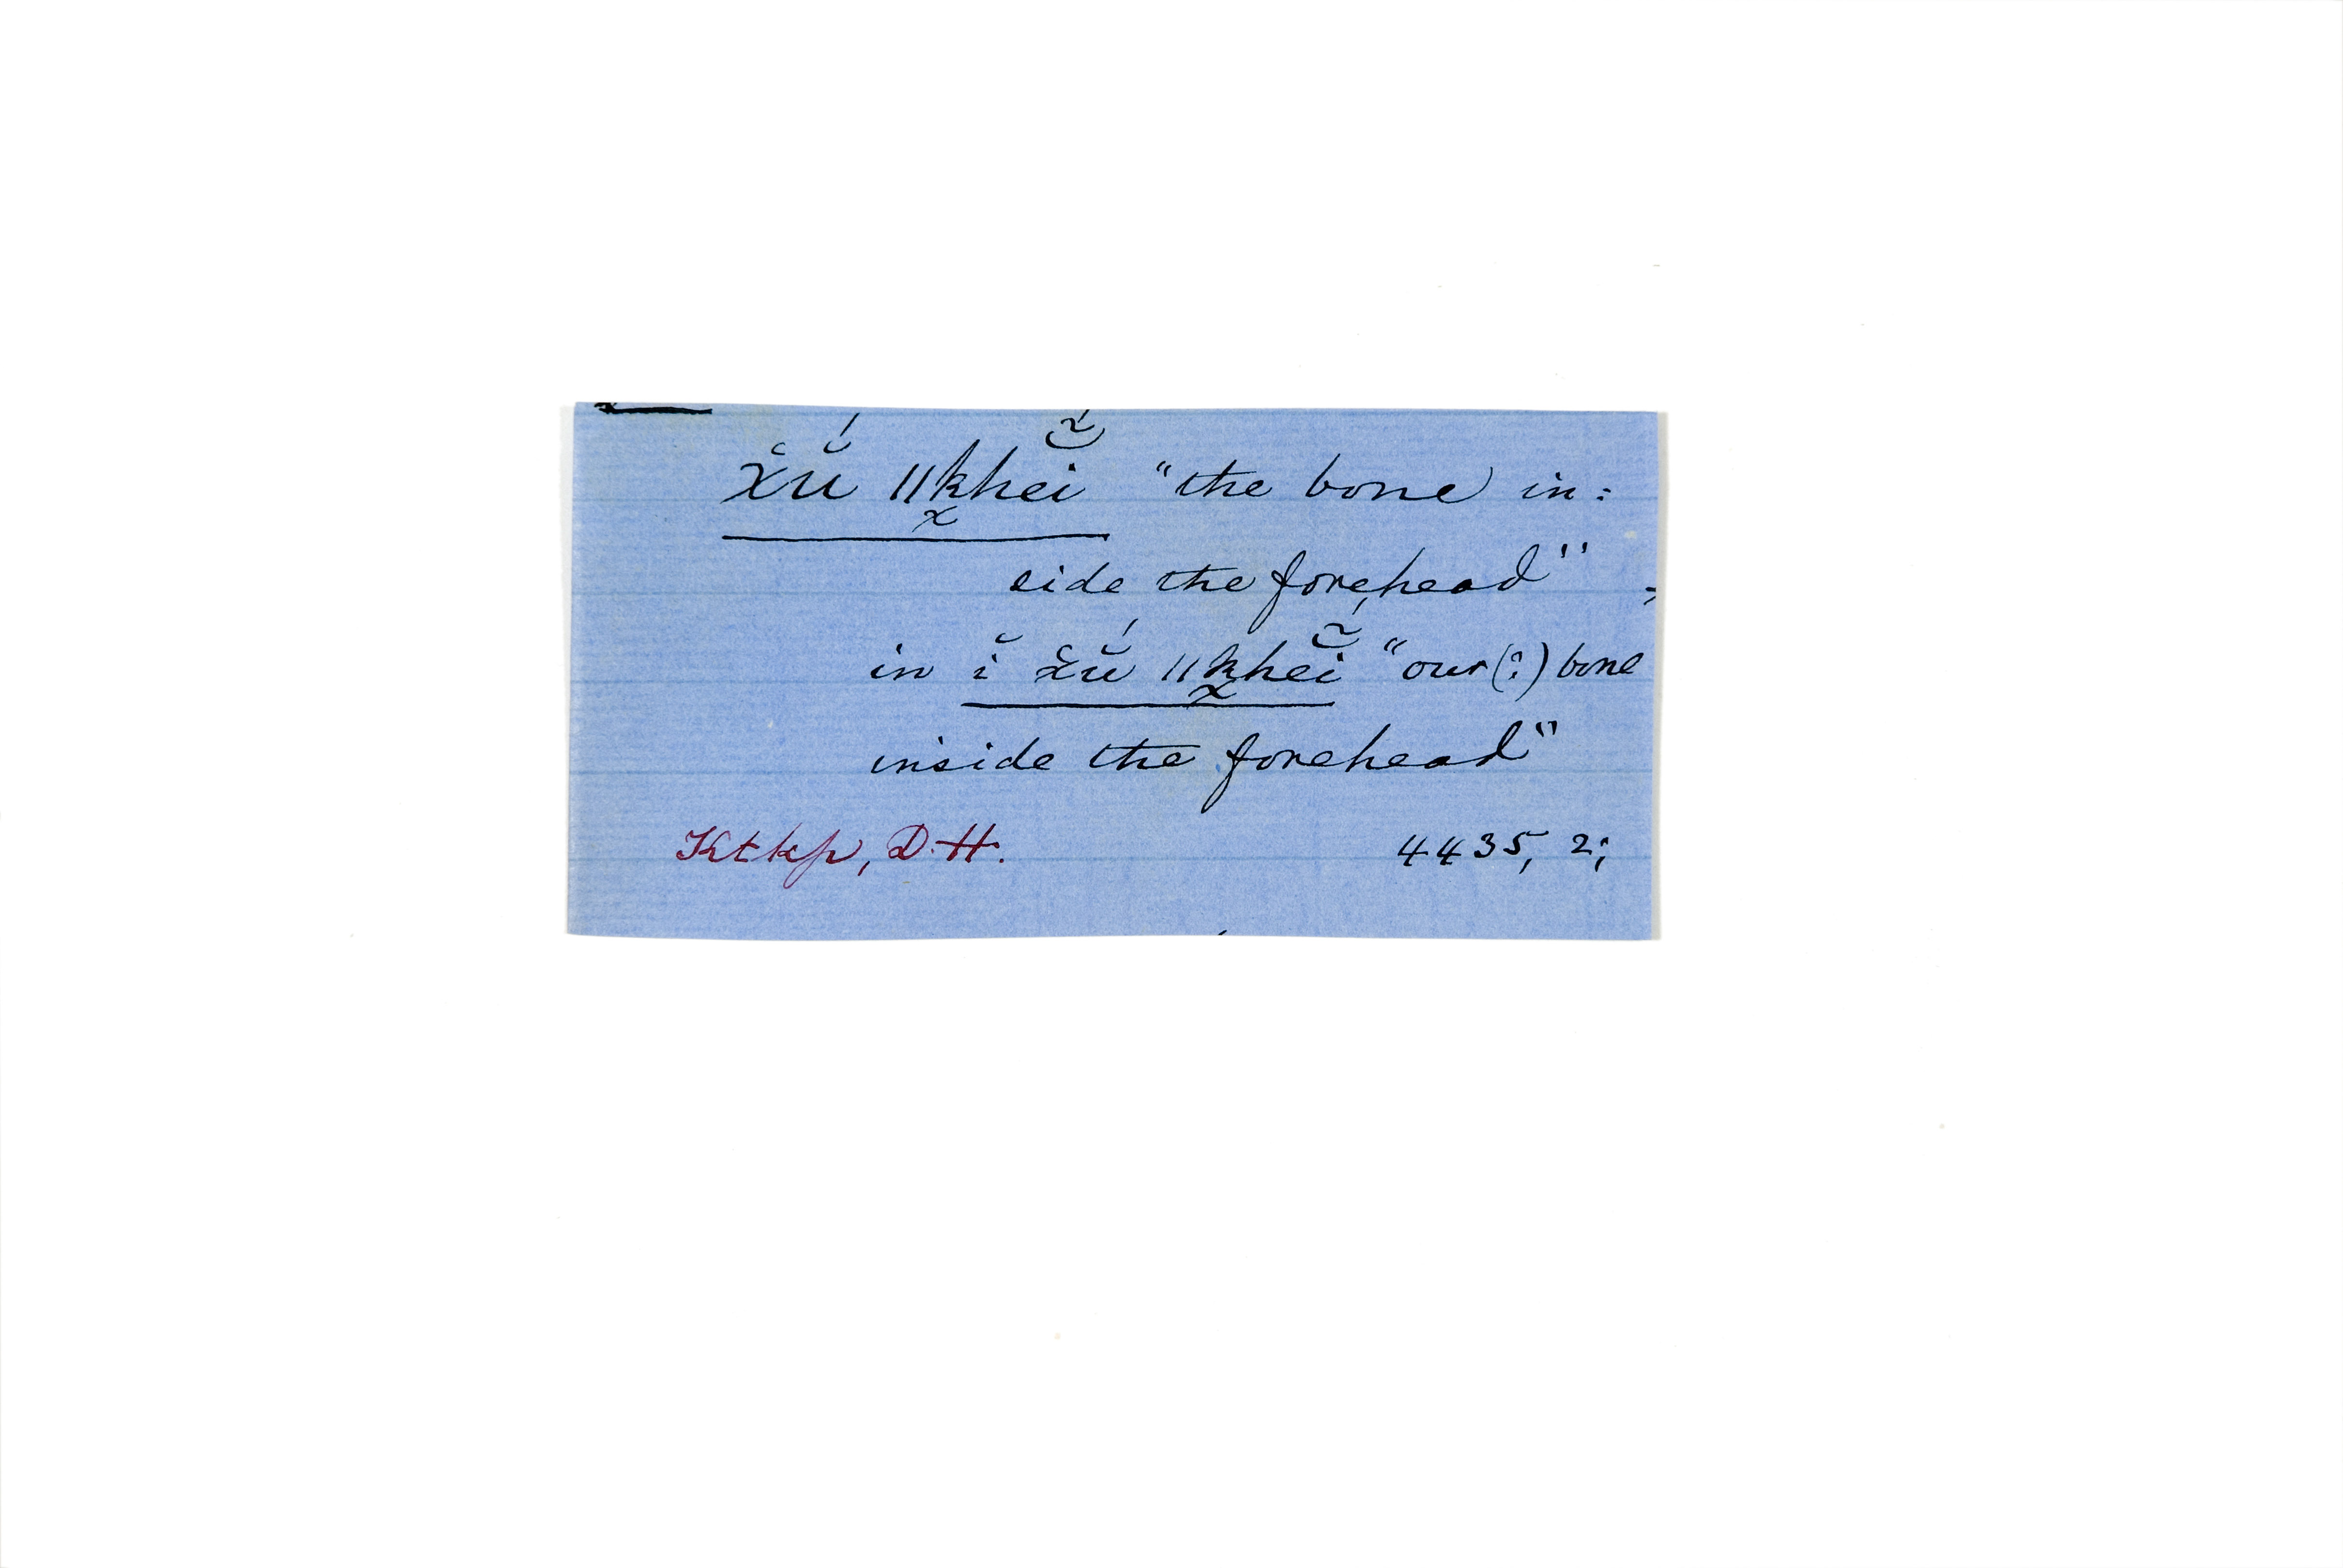 x̌ŭ́ ǁk͓hẽ̆ĭ "the bone in=
side the forehead" ,
in ĭ x̌ŭ́ ǁk͓hẽ̆ĭ "our (?) bone
inside the forehead"
Ktkp, D.H. 4435, 2;